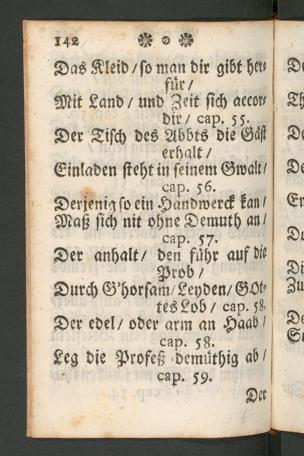 142
Das Kleid / so man dir gibt her-
für /
Mit Land / und Zeit sich accor-
dir / cap. 55.
Der Tisch des Abbts die Gäst
erhalt /
Einladen steht in seinem Gwalt /
cap. 56.
Derjenig so ein Handwerck kan /
Maß sich nit ohne Demuth an /
cap. 57.
Der anhalt / den führ auf die
Prob /
Durch G'horsam / Leyden / GOt-
tes Lob / cap. 58.
Der edel / oder arm an Haab /
cap. 58.
Leg die Profeß demüthig ab /
cap. 59.
Der